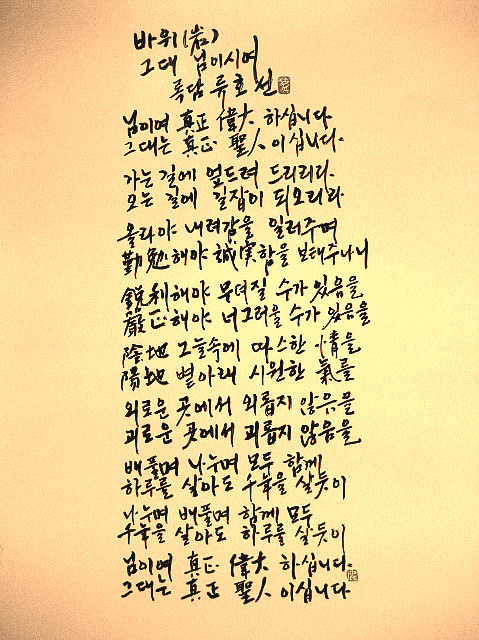 바위(岩)
그대 님이시여
록담 류호선
님이여 真正 偉大 하십니다
그대는 真正 聖人 이십니다.
가는 길에 엎드려 드리리다.
오는 길에 길잡이 되오리라
올라야 내려감을 일러주며
勤勉해야 誠実함을 보태주나니
鋭利해야 무뎌질 수가 있음을
嚴正해야 너그러울 수가 있음을
陰地 그늘속에 따스한 情을
陽地 볕아래 시원한 氣를
외로운 곳에서 외롭지 않음을
괴로운 곳에서 괴롭지 않음을
베풀며 나누며 모두 함께
하루를 살아도 千年을 살듯이
나누며 베풀며 함께 모두
千年을 살아도 하루를 살듯이
님이여 真正 偉大 하십니다.
그대는 真正 聖人 이십니다